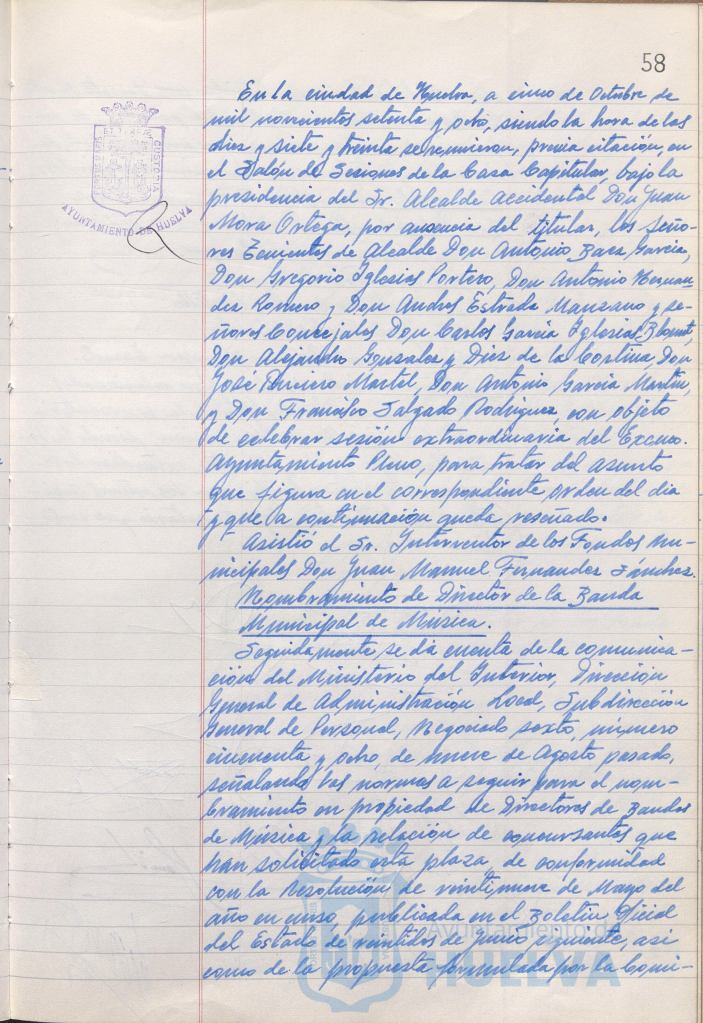 58
AYUNTAMIENTO DE HUELVA
CUSTODIA
En la ciudad de Huelva, a cinco de Octubre de
mil novecientos setenta y ocho, siendo la hora de las
diez y siete y treinta se reunieron, previa citación, en
el Salón de Sesiones de la Casa Capitular, bajo la
presidencia del Sr. Alcalde accidental Don Juan
Mora Ortega, por ausencia del titular, los Seño-
res Tenientes de Alcalde Don Antonio Baez García,
Don Gregorio Iglesias Portero, Don Antonio Hernan
dez Romero y Don Andrés Estrada Manzano y se-
ñores Concejales Don Carlos García Iglesias,
Don Alejandro Gonzalez y Diez de la Cortina, Don
José Martel, Don Antonio García Martín,
y Don Francisco Salgado Rodriguez, con objeto
de celebrar sesión extraordinaria del Excmo.
Ayuntamiento Pleno, para tratar del asunto
que figura en el correspondiente orden del dia
y que a continuación queda reseñado.
Asistió el Sr. Interventor de los Fondos Mu-
nicipales Don Juan Manuel Fernandez Sánchez.
Nombramiento de Director de la Banda
Municipal de Música.
Seguidamente se da cuenta de la comunica-
ción del Ministerio del Interior, Dirección
General de Administración Local, Subdirección
General de Personal, Negociado sexto, número
cincuenta y ocho, de nueve de Agosto pasado,
señalando las normas a seguir para el nom-
bramiento en propiedad de Directores de Bandas
de Música y la relación de concursantes que
han solicitado esta plaza, de conformidad
con la Resolución de veintinueve de Mayo del
año en curso publicada en el Boletín Oficial
del Estado de veintidos de Junio siguiente, asi
como de la propuesta formulada por la Comi-
Ayuntamiento de
HUELVA